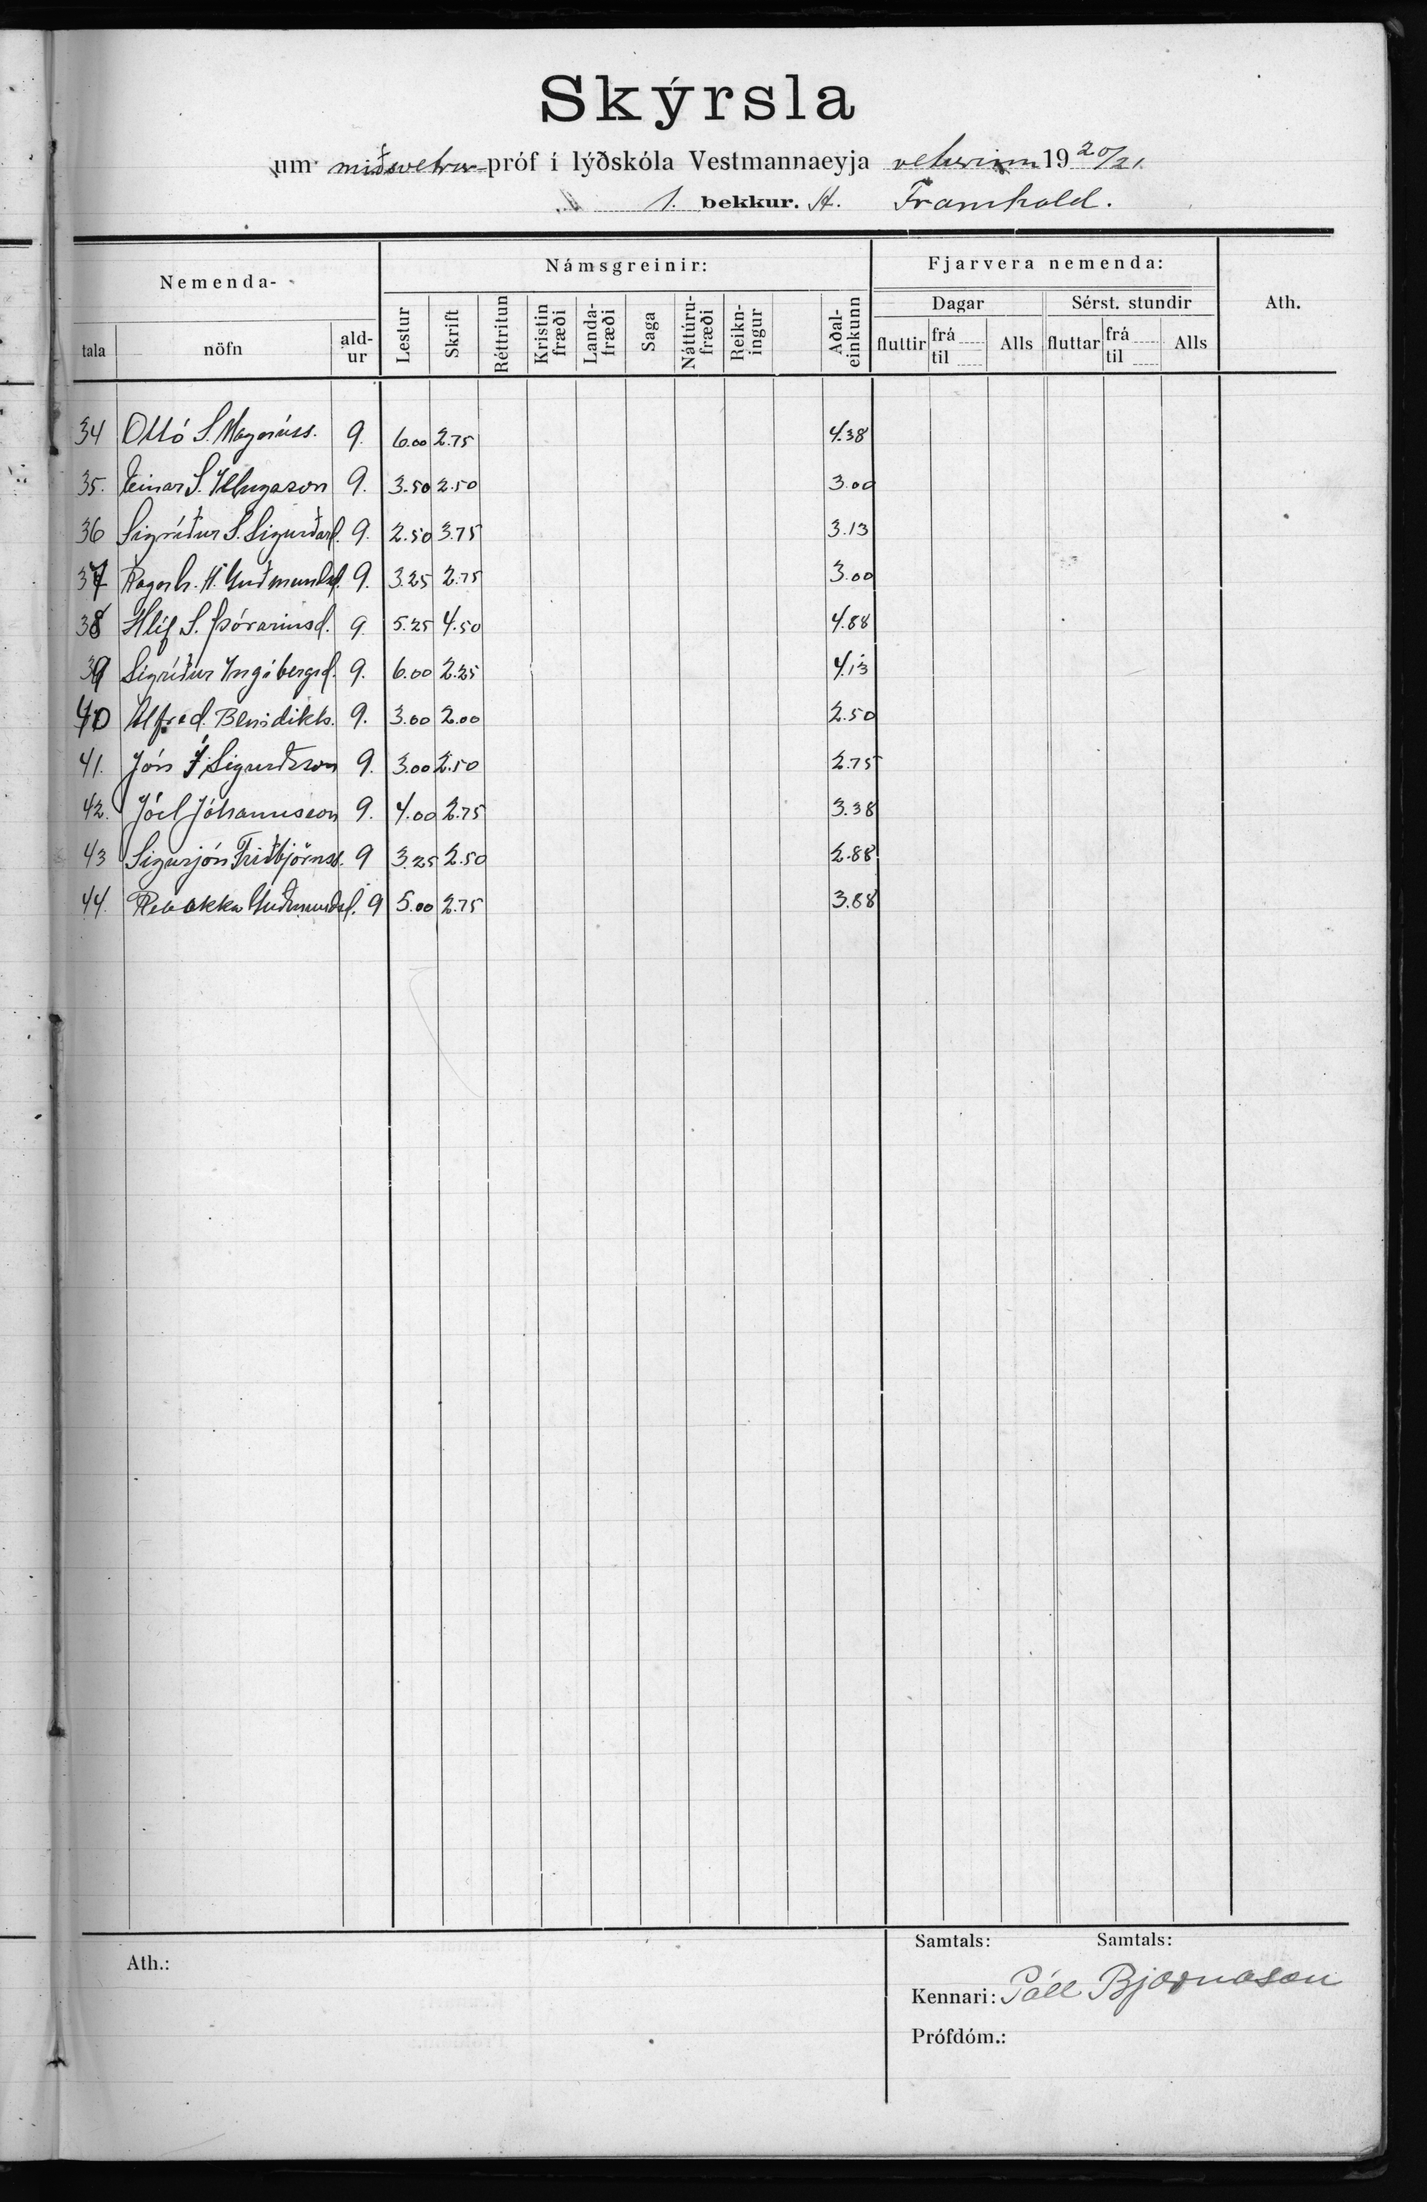 Skýrsla
um miðsvetrar-próf í lýðskóla Vestmannaeyja veturinn 1920/21.
1. bekkur. A. Framhald.
Nemenda-
Námsgreinir:
Fjarvera nemenda:
Ath.
tala nöfn ald-ur Lestur Skrift Réttritun Kristin fræði Landa-fræði Saga Náttúru-fræði Reikn-ingur Aðal-einkunn
Dagar Sérst. stundir
fluttir frá til Alls fluttar frá til Alls
34 Ottó S. Magnúss. 9. 6.00 2.75 4.38
35. Einar S. Illugason 9. 3.50 2.50 3.00
36 Sigríður S. Sigurðard. 9. 2.50 3.75 3.13
37 Ragnh. H. Guðmundsd. 9. 3.25 2.75 3.00
38 Hlíf S. Þórarinsd. 9. 5.25 4.50 4.88
39 Sigríður Ingibergsd. 9. 6.00 2.25 4.13
40 Alfred Benidikts. 9. 3.00 2.00 2.50
41. Jón Í Sigurðsson 9. 3.00 2.50 2.75
42. Jóel Jóhannsson 9. 4.00 2.75 3.38
43 Sigurjón Friðbjörnss. 9 3.25 2.50 2.88
44. Rebekka Guðmundsd. 9 5.00 2.75 3.88
Samtals: Samtals:
Ath.:
Kennari: Páll Bjarnason
Prófdóm.: